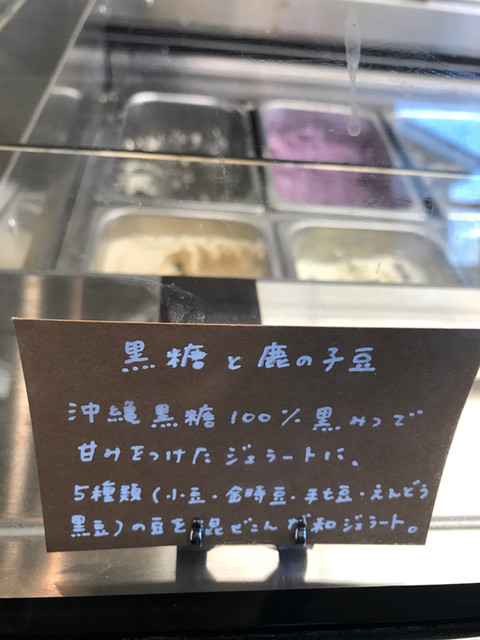 黒糖と鹿の子豆
沖縄黒糖100%黒みつで
甘みをつけたジェラートに、
5種類(小豆・金時豆・手亡豆・えんどう
黒豆)の豆を混ぜこんだ和ジェラート。